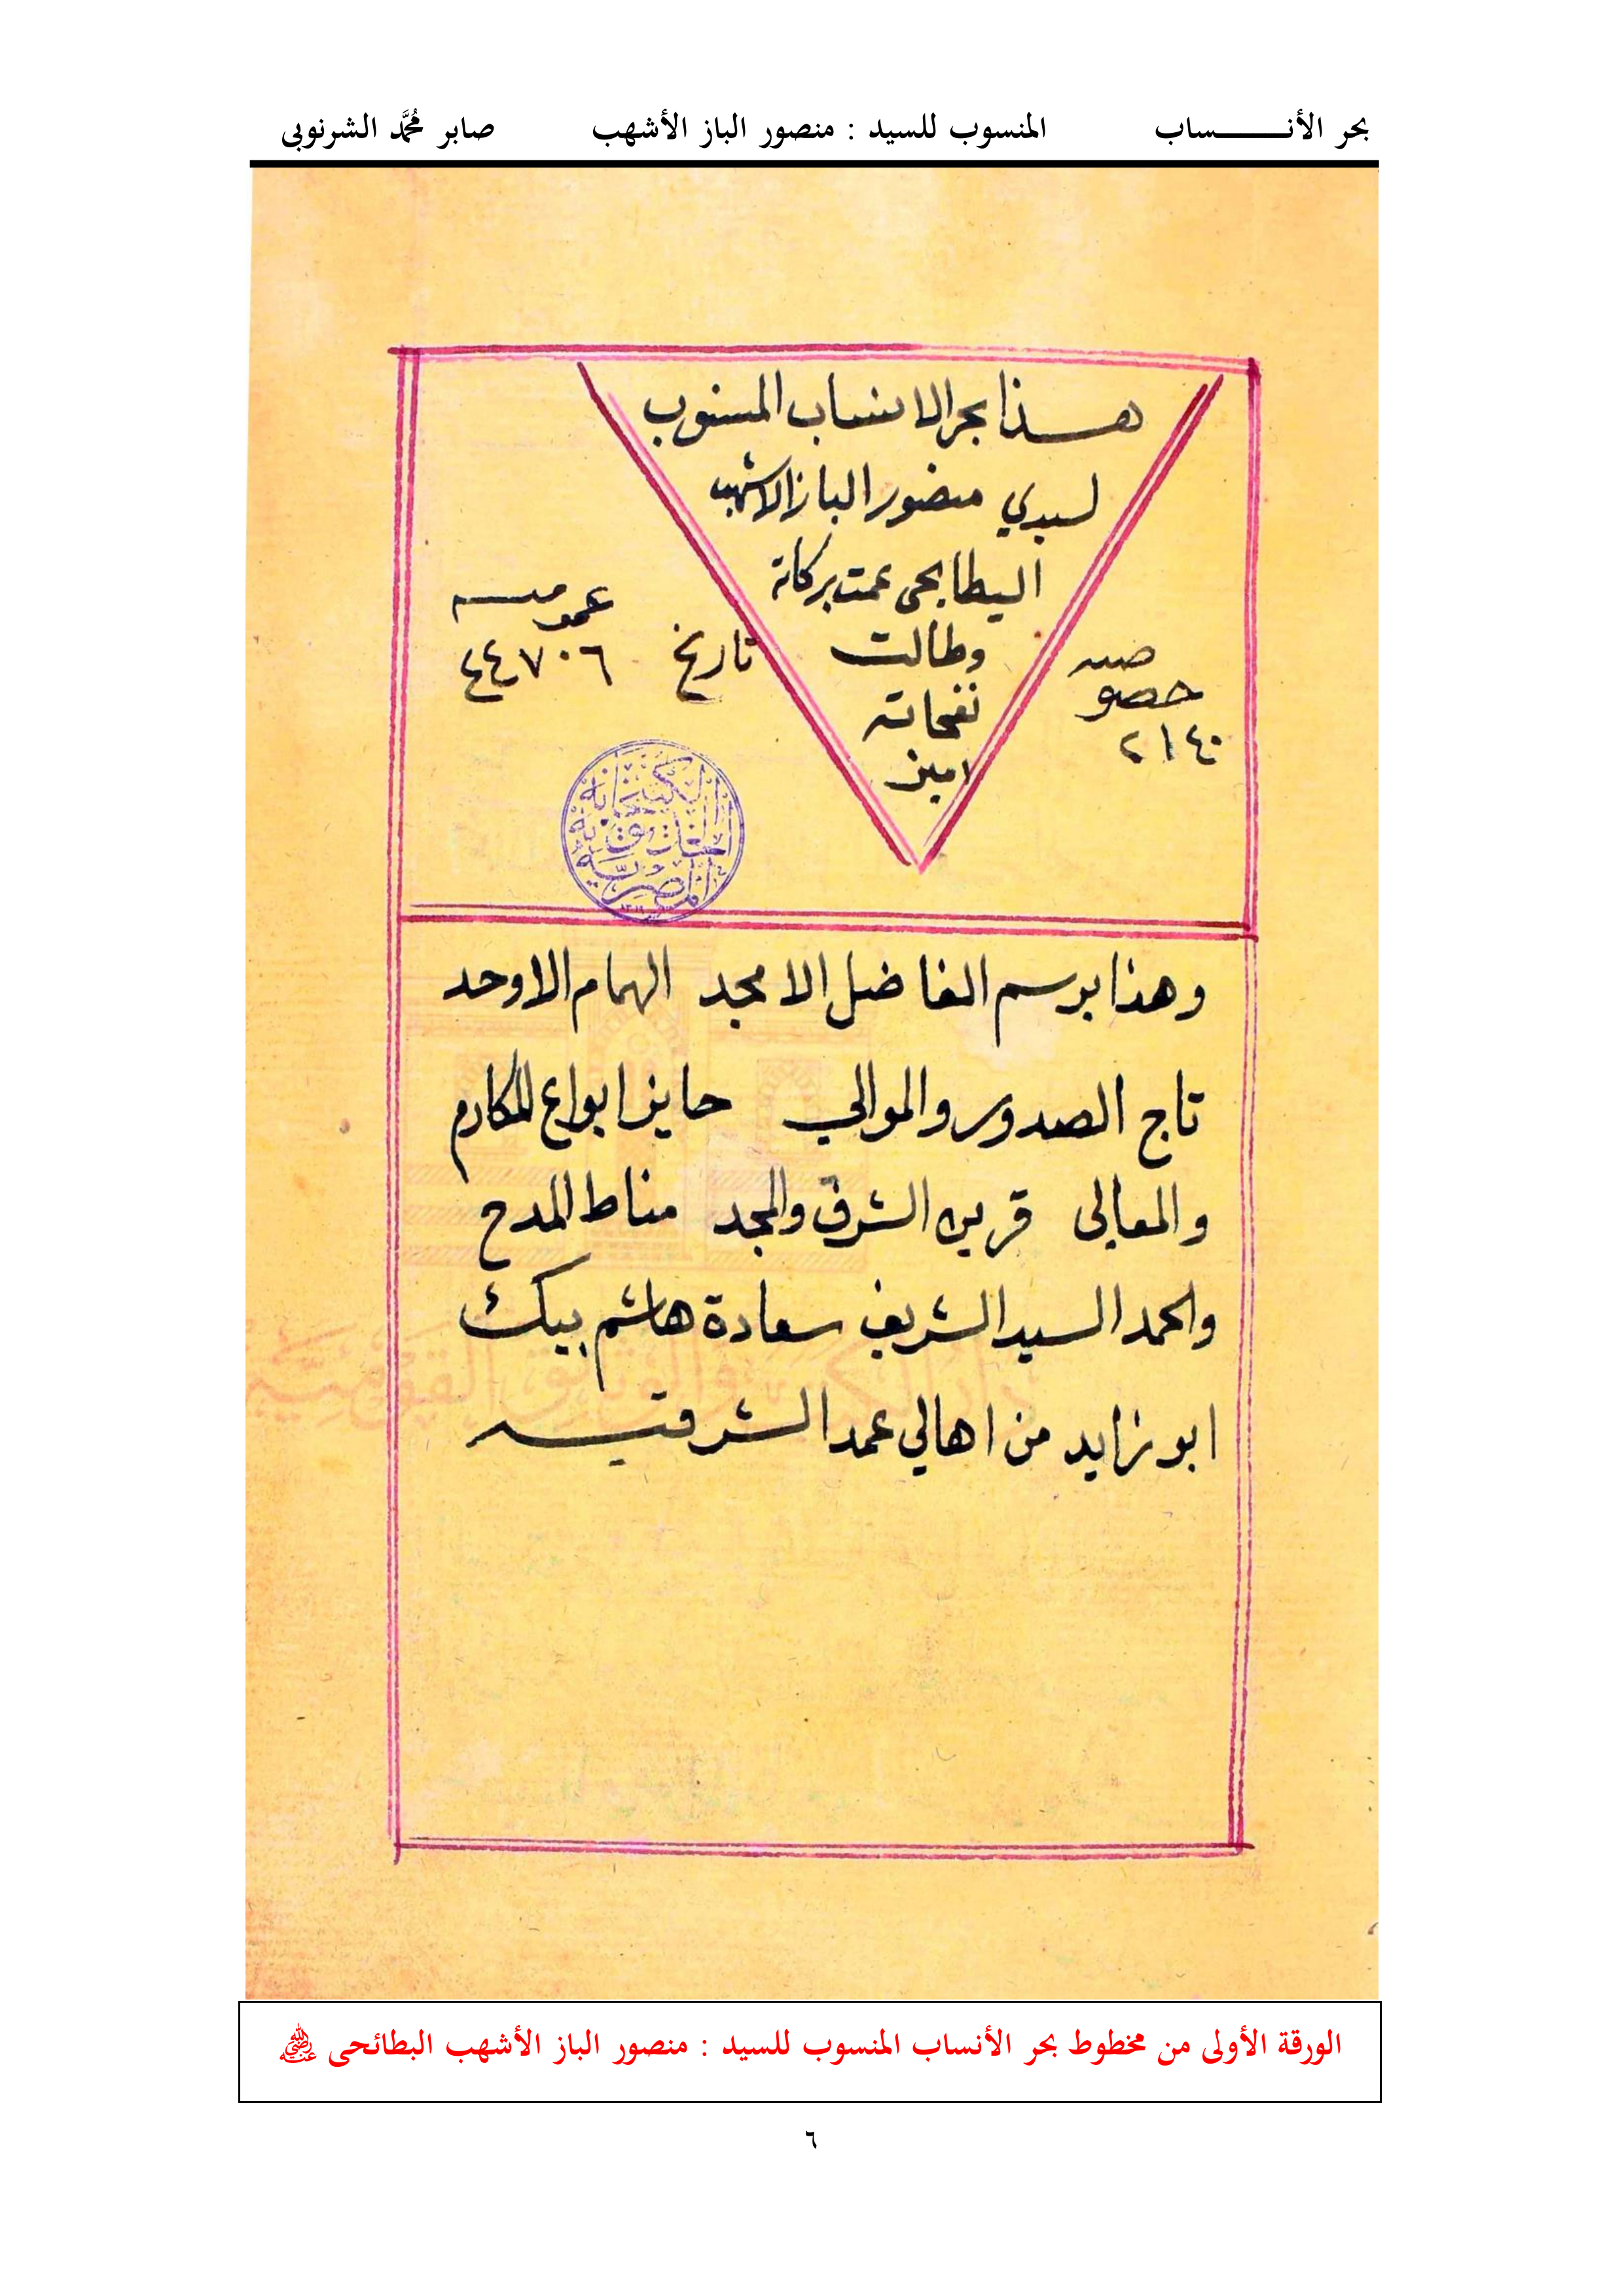 بحر الأنـــــــــساب المنسوب للسيد : منصور الباز الأشهب صابر مُحَمَّد الشرنوبى
هـذا بحر الانساب المنسوب
لسيدي منصور الباز الاشهب
البطايحى عمت بركاته
وطالت
نفحاته
امين
خصوصيه
٢١٤٠
تاريخ
عموميه
٤٤٧٠٦
الكتبخانة
الخديوية
المصرية
وهذا برسم الفاضل الامجد الهمام الاوحد
تاج الصدور والموالي حايز انواع المكارم
والمعالى قرين الشرف والمجد مناط المدح
والحمد السيد الشريف سعادة هاشم بيك
ابو زايد من اهالي عمد الشرقيه
دار الكتب والوثائق القومية
الورقة الأولى من مخطوط بحر الأنساب المنسوب للسيد : منصور الباز الأشهب البطائحى ﵁
٦